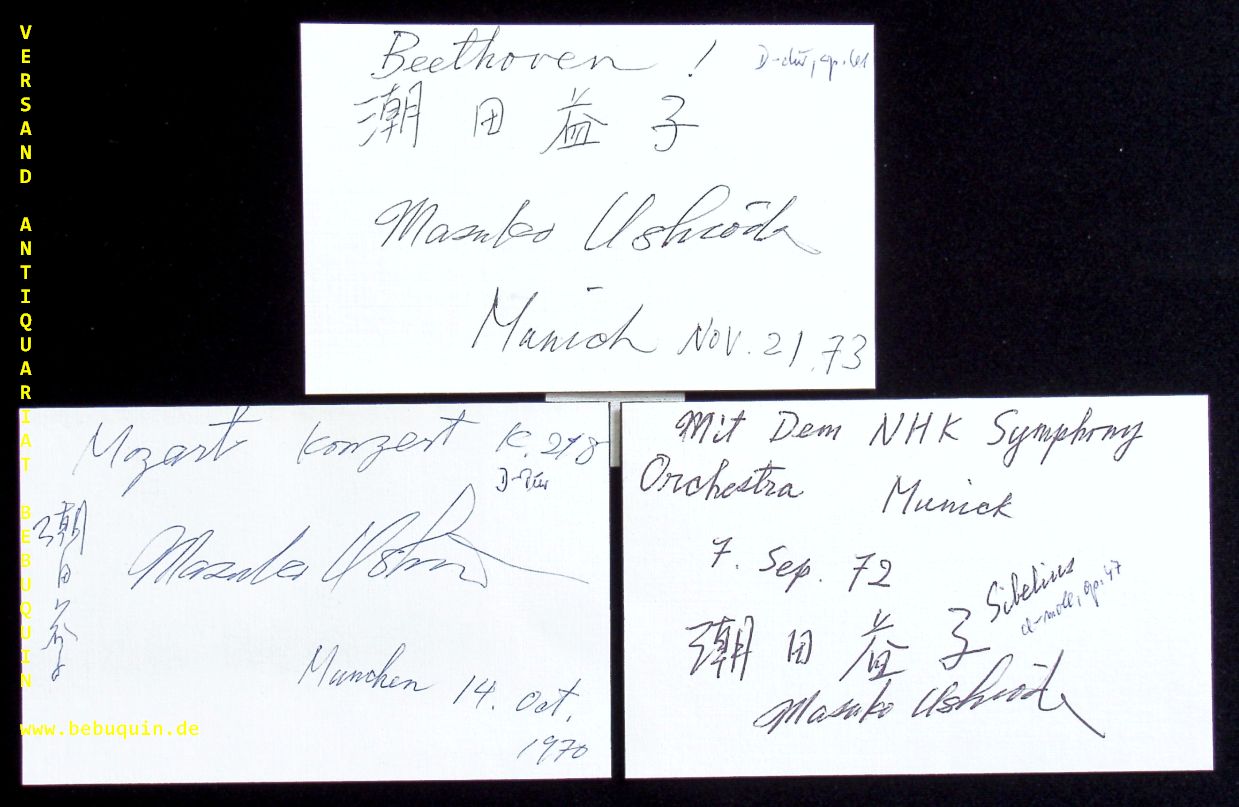 VERSAND ANTIQUARIAT BEBUQUIN
www.bebuquin.de
Beethoven !
D-dur, op. 61
潮田益子
Masuko Ushioda
Munich Nov. 21. 73
Mozart Konzert K. 218
D-Dur
潮田益子
Masuko Ushioda
Munchen 14. Oct.
1970
Mit Dem NHK Symphony
Orchestra Munick
7. Sep. 72
Sibelius
d-moll, op. 47
潮田益子
Masuko Ushioda